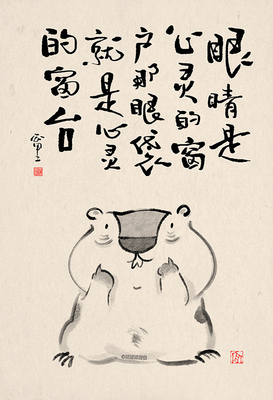 眼睛是
心灵的窗
户那眼袋
就是心灵
的窗台